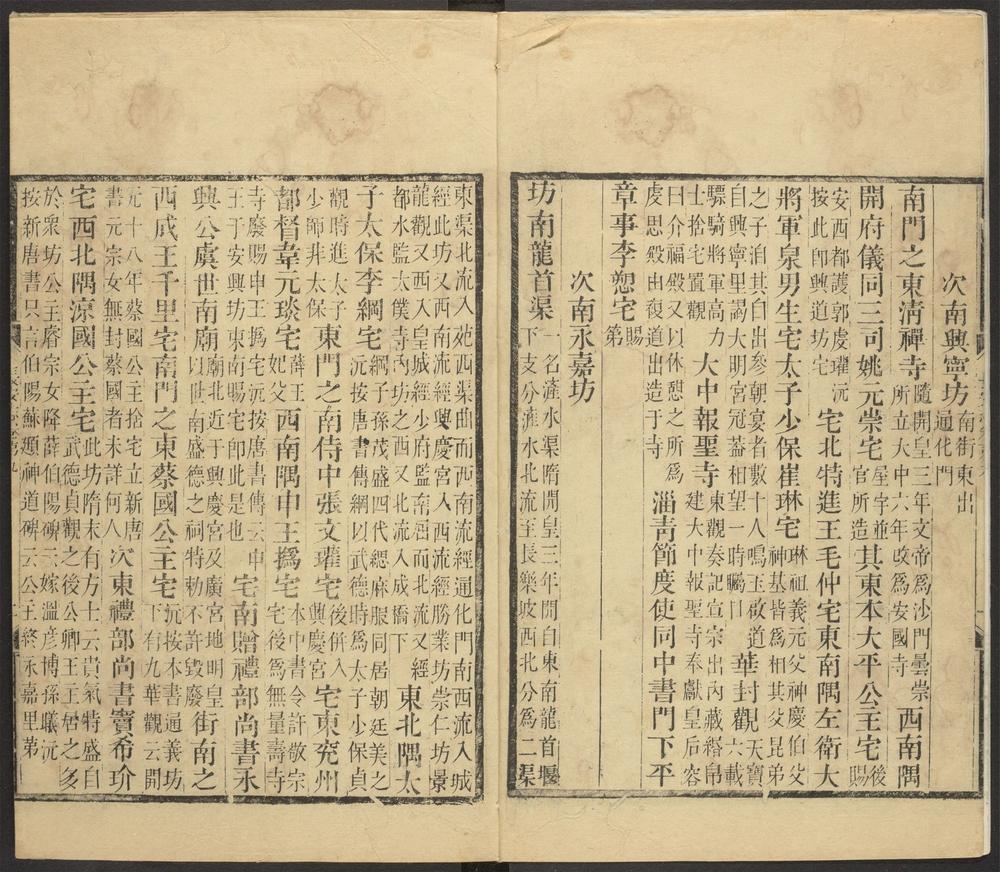 次南興寧坊南街東出通化門
南門之東清禪寺隨開皇三年文帝為沙門曇崇所立大中六年改為安國寺西南隅
開府儀同三司姚元崇宅屋宇並官所造其東本大平公主宅後賜
安西都護郭虔瓘沅按此即興道坊宅宅北特進王毛仲宅東南隅左衛大
將軍泉男生宅太子少保崔琳宅琳祖義元父神慶伯父神基皆為相其父昆弟
之子洎其自出參朝宴者數十人鳴玉啟道自興寧里謁大明宮冠蓋相望一時矚目華封觀天寶六載
驃騎將軍高力士捨宅置觀大中報聖寺東觀奏記宣宗出內藏緡帛建大中報聖寺奉獻皇后容
曰介福殿又以休憩之所為虔思殿由複道出造于寺淄青節度使同中書門下平
章事李愬宅賜第
次南永嘉坊
坊南龍首渠一名滻水渠隋開皇三年開自東南龍首堰下支分滻水北流至長樂坡西北分為二渠
東渠北流入苑西渠曲而西南流經通化門南西流入城經此坊又西南流經興慶宮入西流經勝業坊崇仁坊景
龍觀又西入皇城經少府監南屈而北流又經都水監太僕寺內坊之西又北流入成橋下東北隅太
子太保李綱宅綱子孫茂盛四代緦麻服同居朝廷美之沅按唐書傳綱以武德時為太子少保貞
觀時進太子少師非太保東門之南侍中張文瓘宅後併入興慶宮宅東兗州
都督韋元琰宅薛王妃父西南隅申王撝宅本中書令許敬宗宅後為無量壽寺
寺廢賜申王撝宅沅按唐書傳云申王于安興坊東南賜宅即此是也宅南贈禮部尚書永
興公虞世南廟廟北近于興慶宮及廣宮地明皇以世南盛德之祠特勅不許毀廢街南之
西成王千里宅南門之東蔡國公主宅沅按本書通義坊下有九華觀云開
元十八年蔡國公主捨宅立新唐書元宗女無封蔡國者未詳何人次東禮部尚書竇希玠
宅西北隅涼國公主宅此坊隋末有方士云貴氣特盛自武德貞觀之後公卿王主居之多
於衆坊公主睿宗女降薛伯陽碑云嫁溫彥博孫曦沅按新唐書只言伯陽蘇頲神道碑云公主終永嘉里第